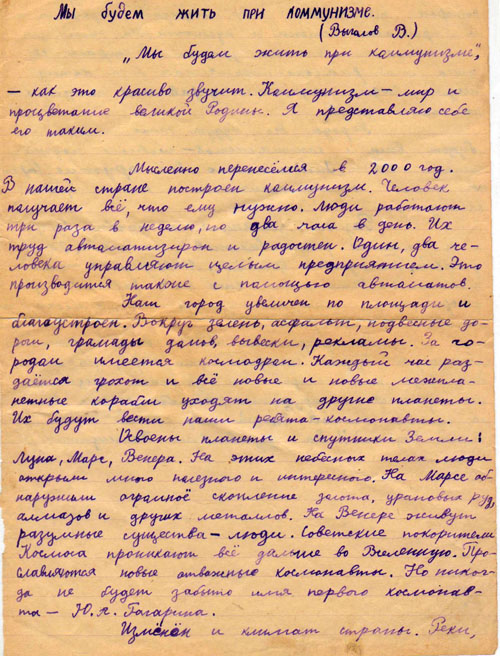 Мы будем жить при коммунизме.
(Выгалов В.)
„Мы будем жить при коммунизме",
— как это красиво звучит. Коммунизм — мир и
процветание великой Родины. Я представляю себе
его таким.
Мысленно перенесёмся в 2000 год.
В нашей стране построен коммунизм. Человек
получает всё, что ему нужно. Люди работают
три раза в неделю, по два часа в день. Их
труд автоматизирон и радостен. Один, два че-
ловека управляют целым предприятием. Это
производится также с помощью автоматов.
Наш город увеличен по площади и
благоустроен. Вокруг зелено, асфальт, подвесные до-
роги, громады домов, вывески, рекламы. За го-
родом имеется космодром. Каждый час раз-
даётся грохот и всё новые и новые межпла-
нетные корабли уходят на другие планеты.
Их будут вести наши ребята-космонавты.
Освоены планеты и спутники Земли:
Луна, Марс, Венера. На этих небесных телах люди
открыли много полезного и интересного. На Марсе об-
наружили огромное скопление золота, урановых руд,
алмазов и других металлов. На Венере живут
разумные существа — люди. Советские покорители
Космоса проникают всё дальше во Вселенную. Про-
славляются новые отважные космонавты. Но никог-
да не будет забыто имя первого космонав-
та — Ю. А. Гагарина.
Изменён и климат страны. Реки,